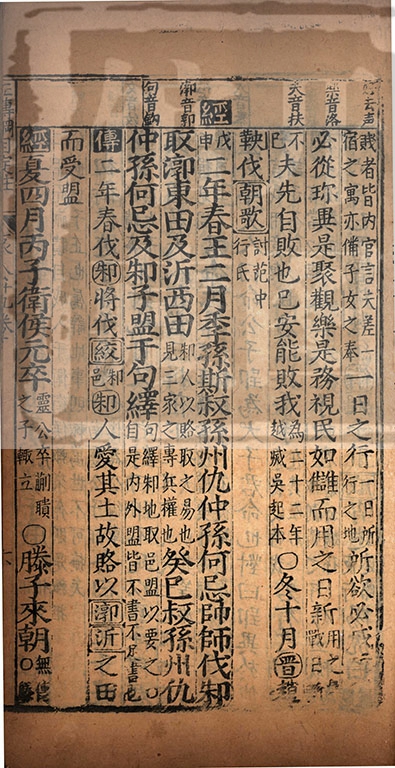 賤者皆内官言夫差一宿之寓亦備子女之奉一日之行一日所行之地所欲必成
必從珍異是聚觀樂是務視民如讎而用之日新用之戰日
不已夫先自敗也已安能敗我為二十二年越滅吳起本〇冬十月晉趙
鞅伐朝歌討范中行氏
經戊申二年春王二月季孫斯叔孫州仇仲孫何忌帥師伐邾
取漷東田及沂西田邾人以賂取之易也見三家之專於權也癸巳叔孫州仇
仲孫何忌及邾子盟于句繹句繹邾地取邑盟以要之〇自是内外盟皆不書不足書也
傳二年春伐邾將伐絞邾邑邾人愛其土故賂以漷沂之田
而受盟
經夏四月丙子衛侯元卒靈公卒蒯聵之子輒立〇滕子來朝無傳〇
樂音洛
夫音扶
漷音郭
句音